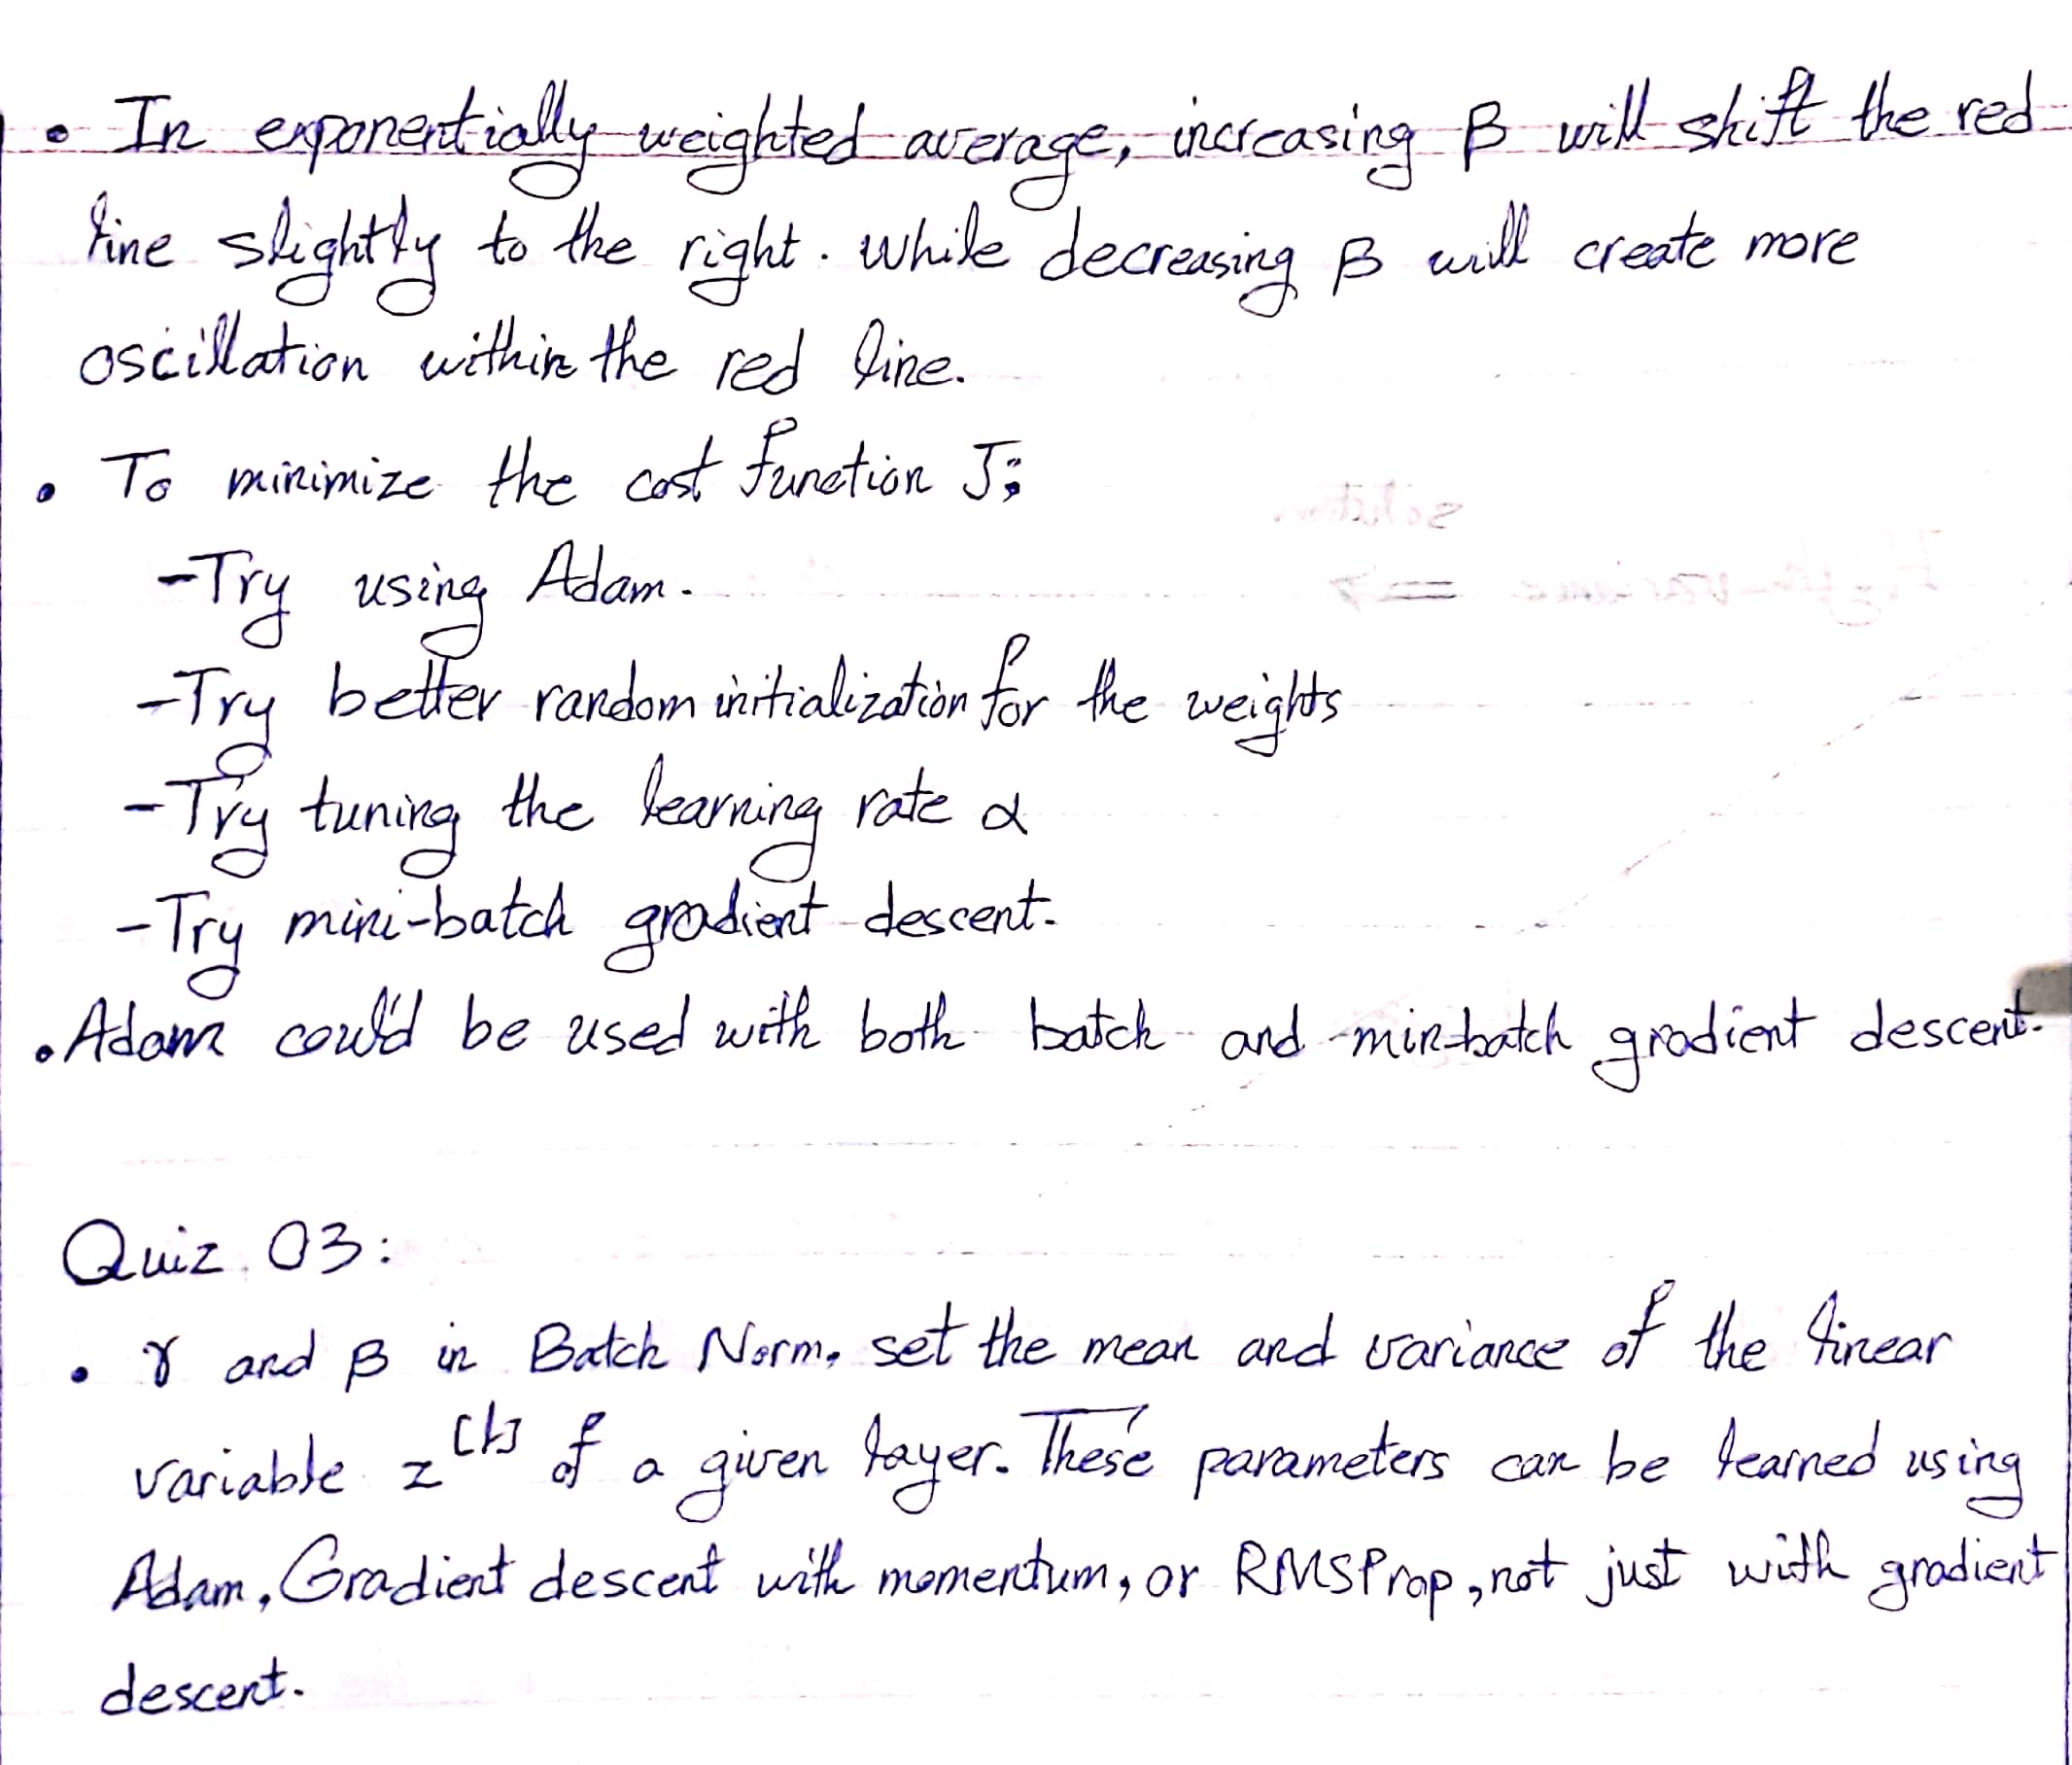 • In exponentially weighted average, increasing β will shift the red
line slightly to the right. While decreasing β will create more
oscillation within the red line.
• To minimize the cost function J:
-Try using Adam.
-Try better random initialization for the weights
-Try tuning the learning rate α
-Try mini-batch gradient descent.
• Adam could be used with both batch and mini-batch gradient descent.
Quiz 03:
• γ and β in Batch Norm. set the mean and variance of the linear
variable z^[l] of a given layer. These parameters can be learned using
Adam, Gradient descent with momentum, or RMSProp, not just with gradient
descent.